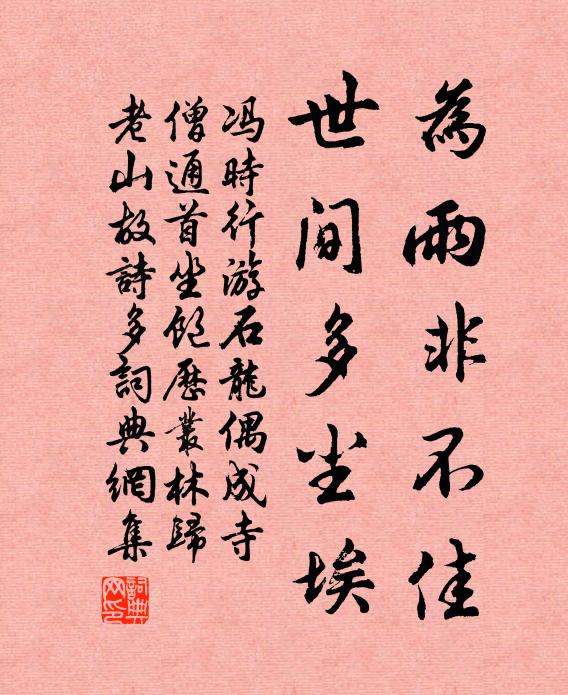 為雨非不佳
世间多尘埃
冯時行游石龍偶成寺
僧通首坐飽歷叢林歸
老山故詩多詞典網集
詞典
网印